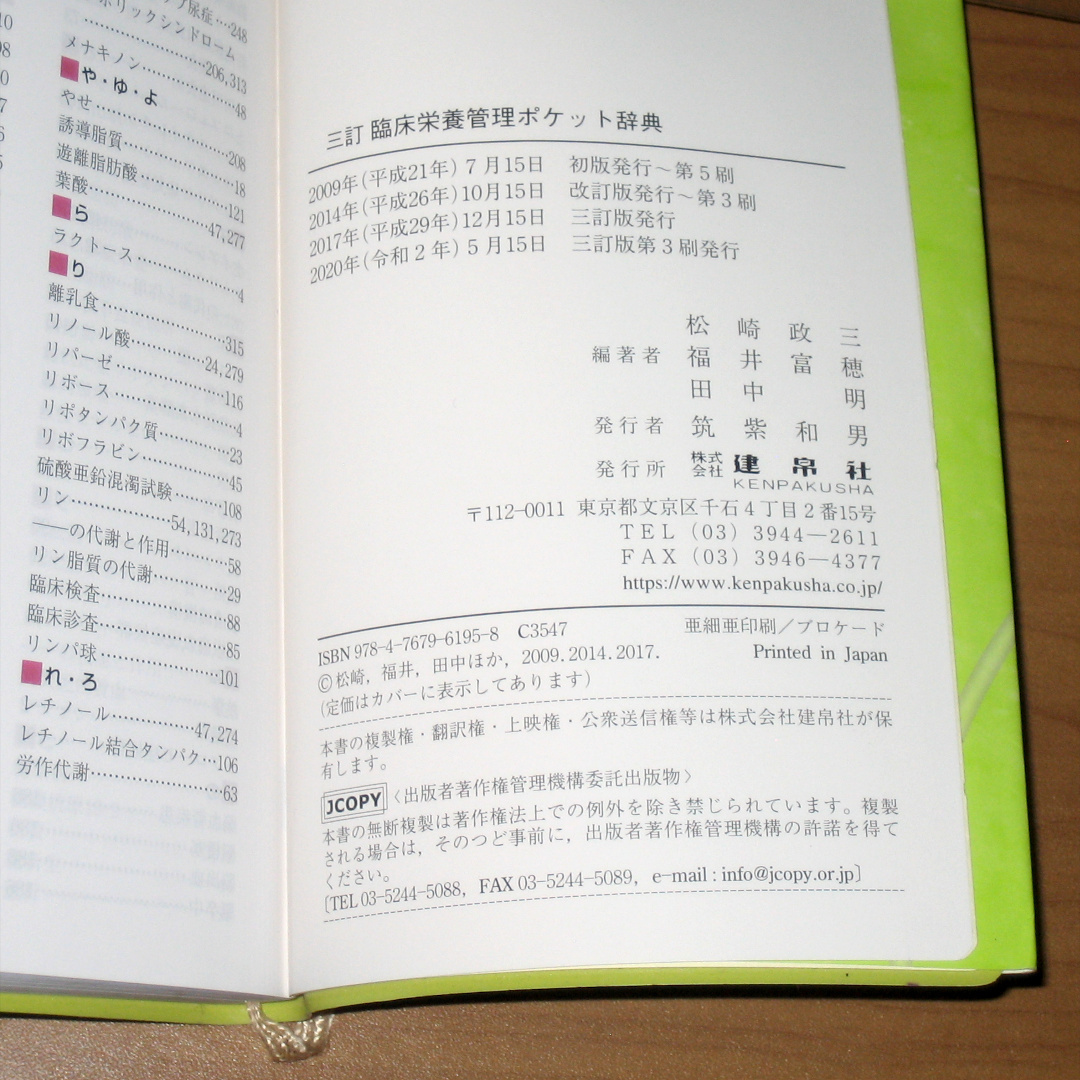 尿症…248
ボリックシンドローム
206,313
メナキノン……48
や・ゆ・よ
やせ……208
誘導脂質……18
遊離脂肪酸……121
葉酸……47,277
ら
ラクトース……4
り
離乳食……315
リノール酸……24,279
リパーゼ……116
リボース……4
リポタンパク質……23
リボフラビン……45
硫酸亜鉛混濁試験……108
リン……54,131,273
――の代謝と作用……58
リン脂質の代謝……29
臨床検査……88
臨床診査……85
リンパ球……101
れ・ろ
レチノール……47,274
レチノール結合タンパク…106
労作代謝……63
三訂 臨床栄養管理ポケット辞典
2009年(平成21年) 7月15日 初版発行～第5刷
2014年(平成26年)10月15日 改訂版発行～第3刷
2017年(平成29年)12月15日 三訂版発行
2020年(令和2年) 5月15日 三訂版第3刷発行
松崎政三
編著者 福井富穂
田中明
発行者 筑紫和男
発行所 株式会社 建帛社
KENPAKUSHA
〒112-0011 東京都文京区千石4丁目2番15号
TEL (03) 3944―2611
FAX (03) 3946―4377
https://www.kenpakusha.co.jp/
ISBN 978-4-7679-6195-8 C3547 亜細亜印刷／ブロケード
©松崎，福井，田中ほか，2009.2014.2017. Printed in Japan
(定価はカバーに表示してあります)
本書の複製権・翻訳権・上映権・公衆送信権等は株式会社建帛社が保
有します。
JCOPY〈出版者著作権管理機構委託出版物〉
本書の無断複製は著作権法上での例外を除き禁じられています。複製
される場合は，そのつど事前に，出版者著作権管理機構の許諾を得て
ください。
〔TEL 03-5244-5088，FAX 03-5244-5089，e-mail : info@jcopy.or.jp〕